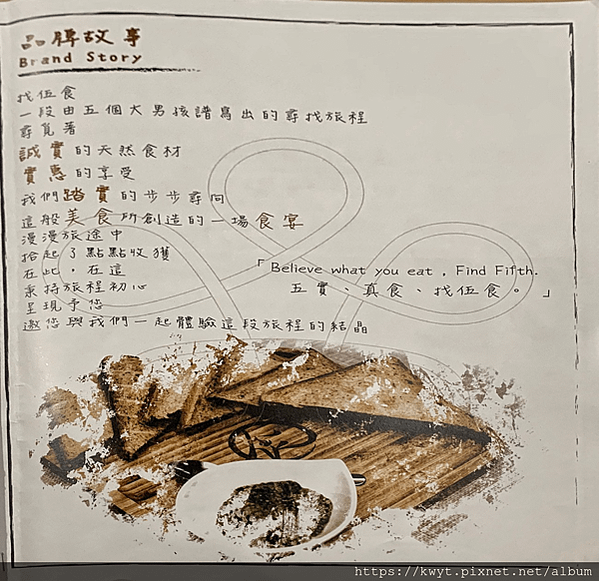 品牌故事
Brand Story
找伍食
一段由五個大男孩譜寫出的尋找旅程
尋覓著
誠實的天然食材
實惠的享受
我們踏實的步步尋問
這般美食所創造的一場食宴
漫漫旅途中
拾起了點點收獲
在此，在這
秉持旅程初心
呈現予您
邀您與我們一起體驗這段旅程的結晶
「Believe what you eat , Find Fifth.
五實、真食、找伍食。」
https://kwyt.pixnet.net/album